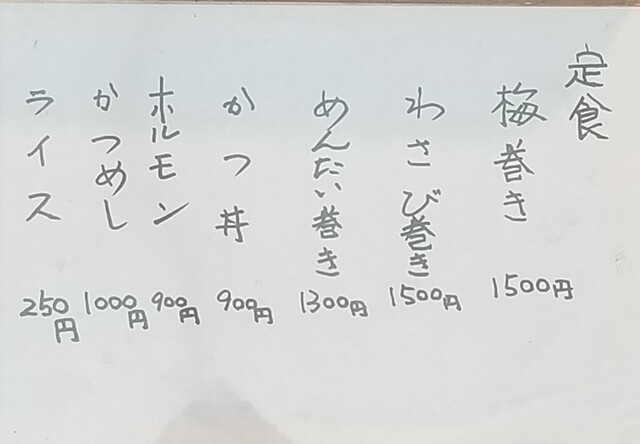 定食
梅巻き 1500円
わさび巻き 1500円
めんたい巻き 1300円
かつ丼 900円
ホルモン 900円
かつめし 1000円
ライス 250円